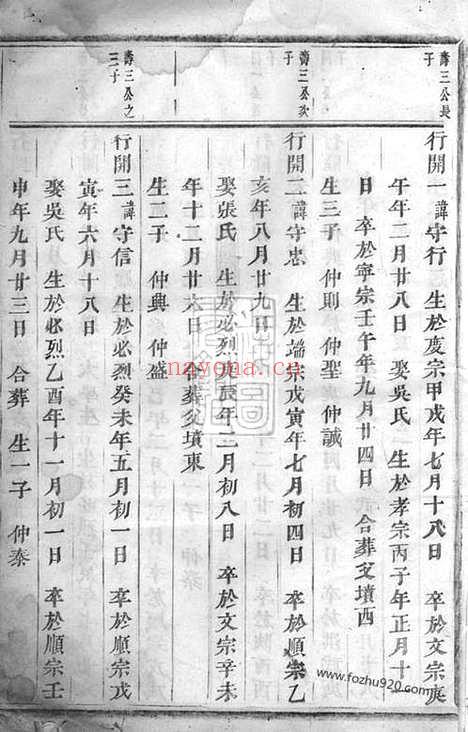 壽三公長
子
行開一諱守行 生於度宗甲戌年七月十八日 卒於文宗庚
午年二月廿八日 娶吳氏 生於孝宗丙子年正月十一
日 卒於寧宗壬午年九月廿四日 合葬父墳西
生三子 仲則 仲聖 仲誠
壽三公次
子
行開二諱守忠 生於端宗戊寅年七月初四日 卒於順宗乙
亥年八月廿九日
娶張氏 生於必烈庚辰年二月初八日 卒於文宗辛未
年十二月廿六日 合葬父墳東
生二子 仲興 仲盛
壽三公之
三子
行開三諱守信 生於必烈癸未年五月初一日 卒於順宗戊
寅年六月十八日
娶吳氏 生於必烈乙酉年十一月初一日 卒於順宗壬
申年九月廿三日 合葬 生一子 仲泰
nayona.cn
www.fozhu920.com